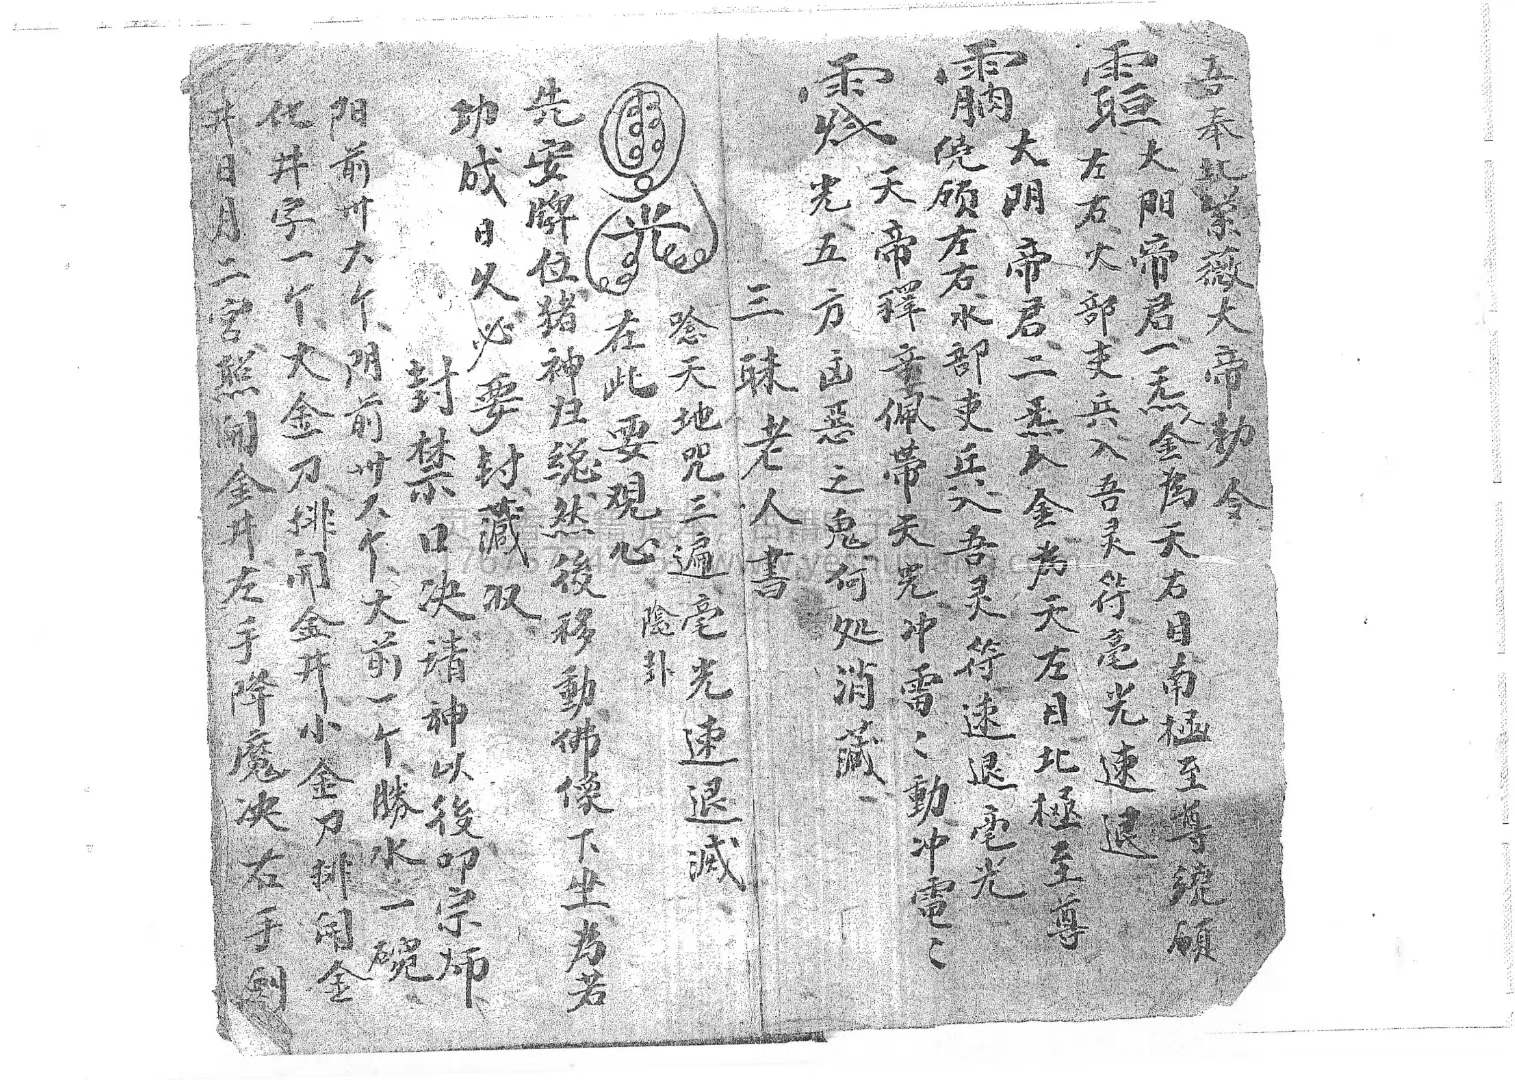 吾奉北紫薇大帝勅令
大阳帝君一炁入金為天右日南極至尊統領
左右火部吏兵入吾灵符毫光速退
大阴帝君二炁入金為天左日北極至尊
統領左右水部吏兵入吾灵符速退毫光
天帝釋章佩帶天光冲雷〻動冲電〻
光五方凶惡之鬼何処消藏
三昧老人書
唸天地咒三遍毫光速退滅
光
在此要覌心
陰卦
先安牌位豬神归綂然後移動佛像下坐為若
功成日久必要封藏双
封禁口决請神以後叩宗师
阳前卅大个阴前卅大个大前一个勝水一碗
化井字一个大金刀排開金井小金刀排開金
井日月二宮熊開金井左手降魔决右手劍